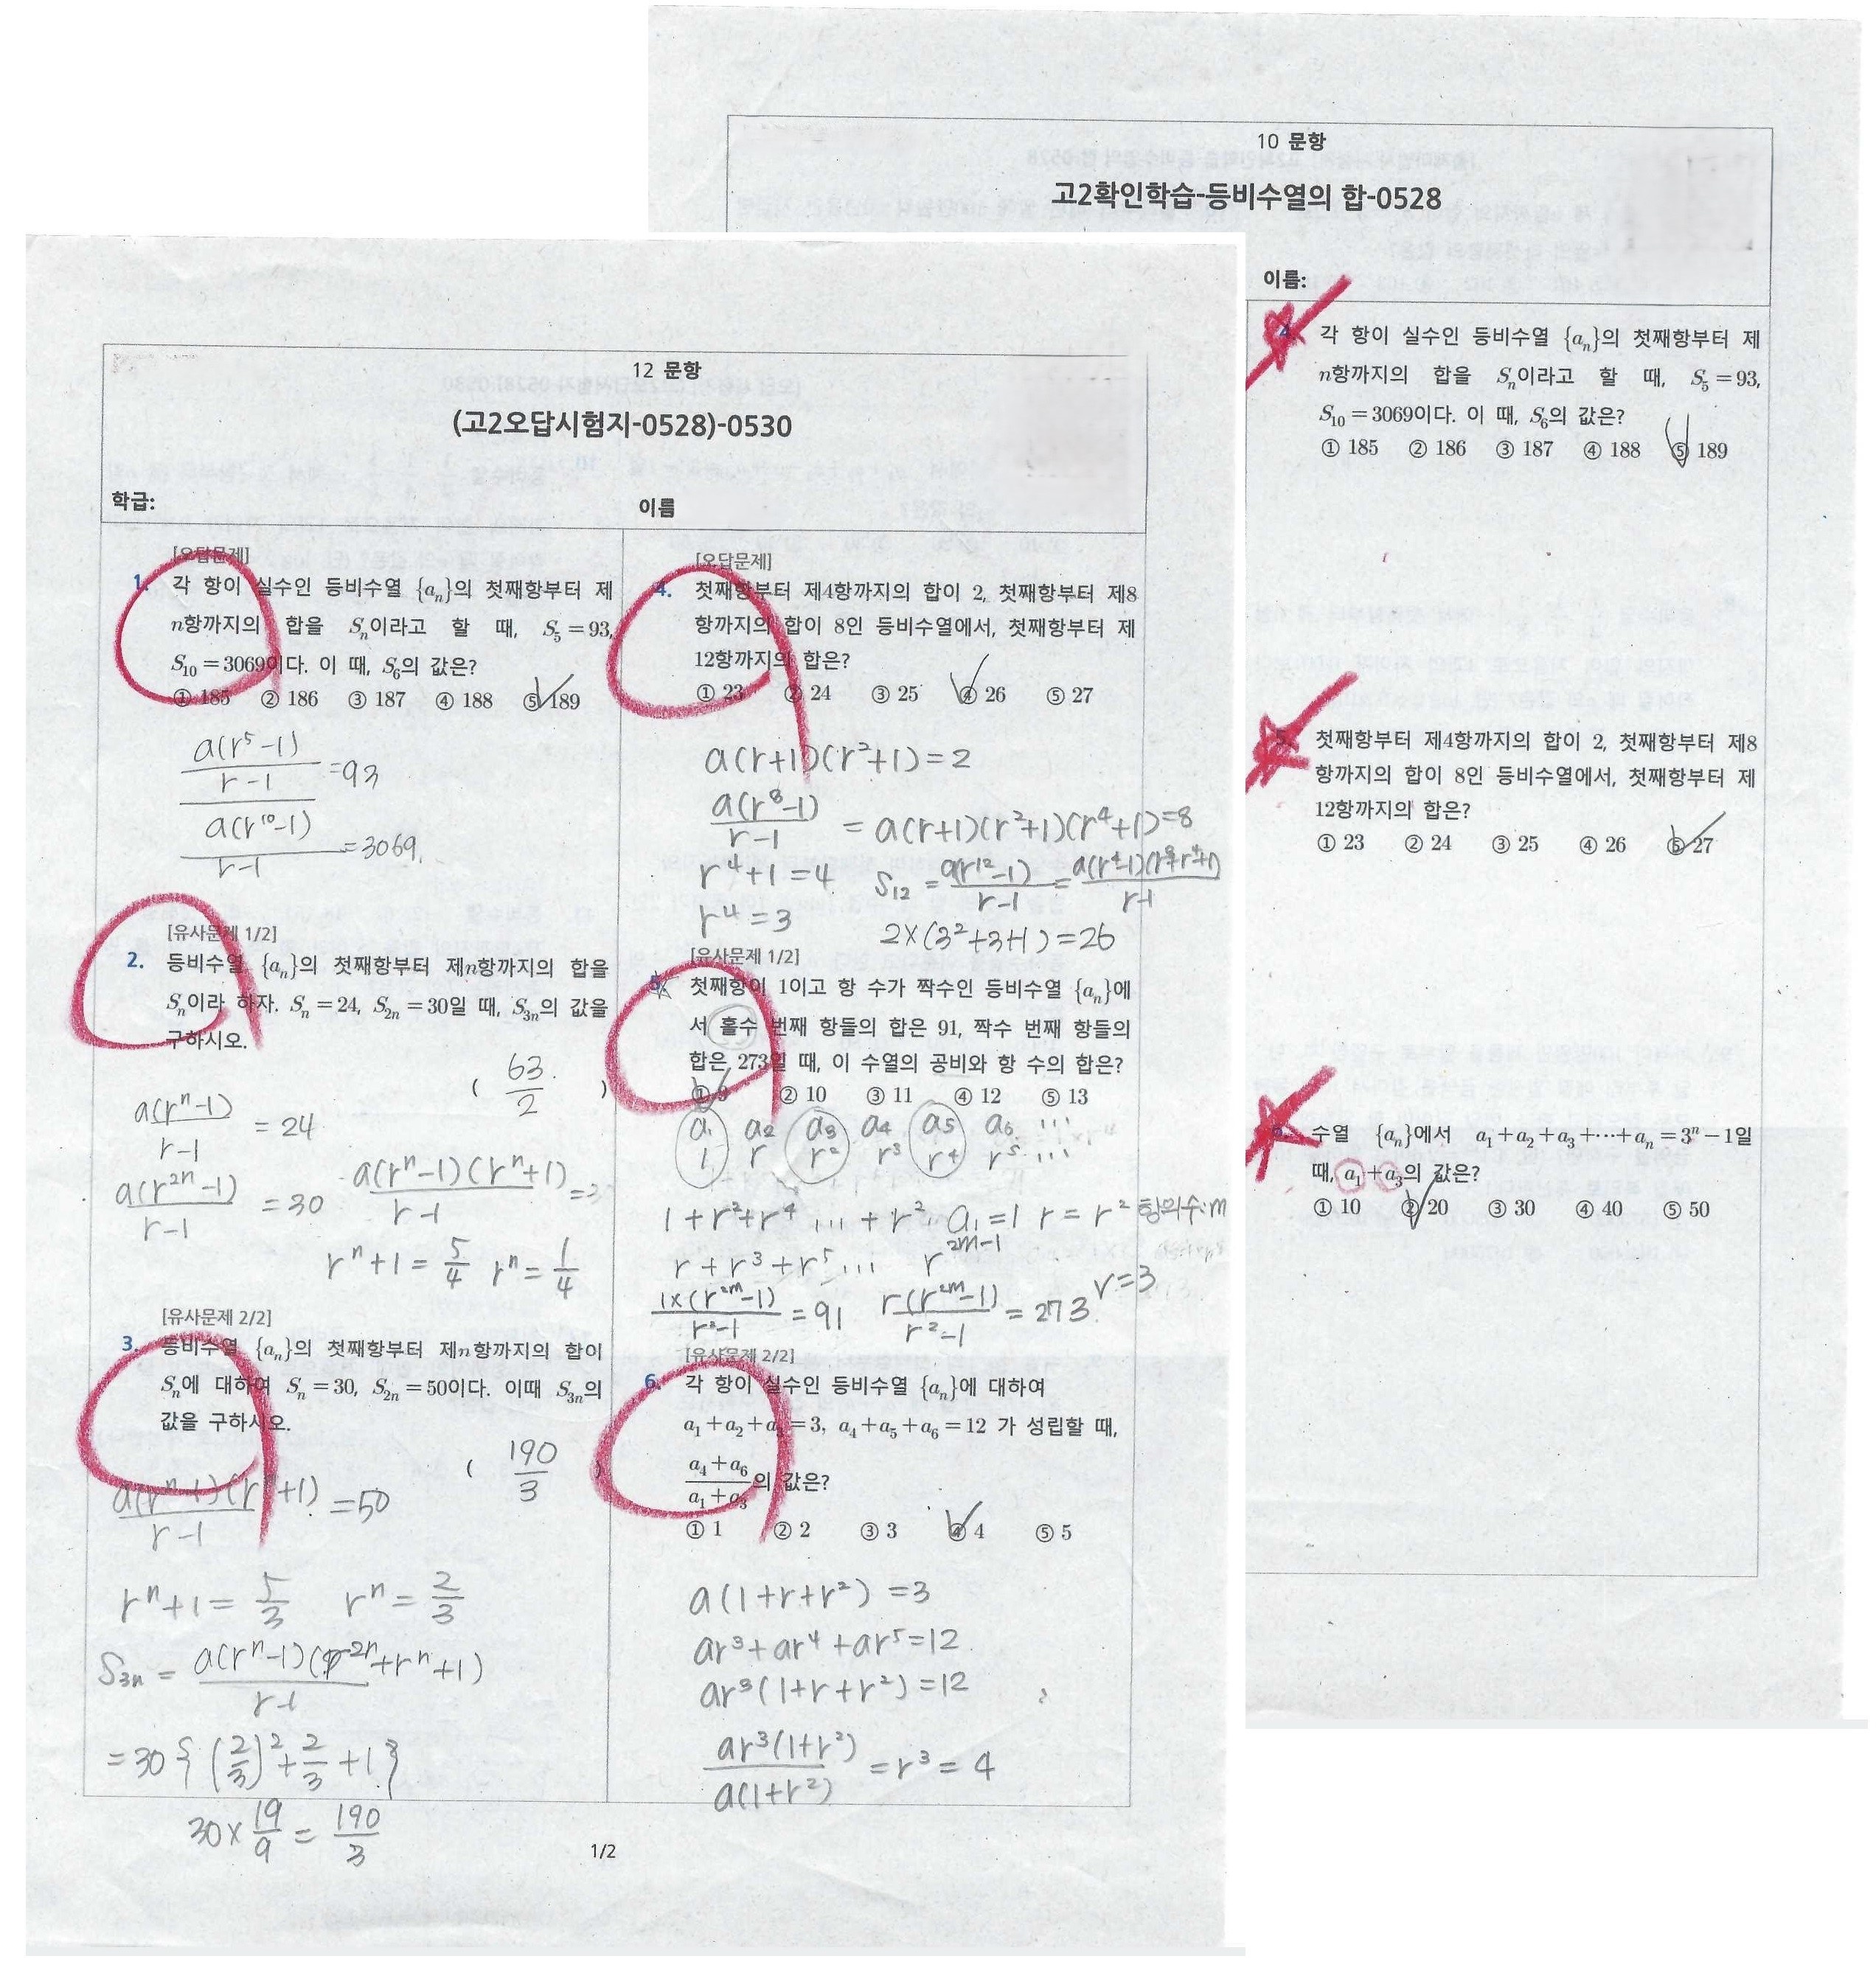 10 문항
고2확인학습-등비수열의 합-0528
이름:
각 항이 실수인 등비수열 {aₙ}의 첫째항부터 제
n항까지의 합을 Sₙ이라고 할 때, S₅=93,
S₁₀=3069이다. 이 때, S₆의 값은?
① 185 ② 186 ③ 187 ④ 188 ⑤ 189
첫째항부터 제4항까지의 합이 2, 첫째항부터 제8
항까지의 합이 8인 등비수열에서, 첫째항부터 제
12항까지의 합은?
① 23 ② 24 ③ 25 ④ 26 ⑤ 27
수열 {aₙ}에서 a₁+a₂+a₃+⋯+aₙ=3ⁿ-1일
때, a₁+a₃의 값은?
① 10 ② 20 ③ 30 ④ 40 ⑤ 50
12 문항
(고2오답시험지-0528)-0530
학급: 이름
[오답문제]
1. 각 항이 실수인 등비수열 {aₙ}의 첫째항부터 제
n항까지의 합을 Sₙ이라고 할 때, S₅=93,
S₁₀=3069이다. 이 때, S₆의 값은?
① 185 ② 186 ③ 187 ④ 188 ⑤ 189
a(r⁵-1)/r-1 =93
a(r¹⁰-1)/r-1 =3069.
[유사문제 1/2]
2. 등비수열 {aₙ}의 첫째항부터 제n항까지의 합을
Sₙ이라 하자. Sₙ=24, S₂ₙ=30일 때, S₃ₙ의 값을
구하시오.
( 63/2 )
a(rⁿ-1)/r-1 = 24
a(r²ⁿ-1)/r-1 = 30 a(rⁿ-1)(rⁿ+1)/r-1 =3
rⁿ+1= 5/4 rⁿ= 1/4
[유사문제 2/2]
3. 등비수열 {aₙ}의 첫째항부터 제n항까지의 합이
Sₙ에 대하여 Sₙ=30, S₂ₙ=50이다. 이때 S₃ₙ의
값을 구하시오.
( 190/3 )
a(rⁿ-1)(rⁿ+1)/r-1 =50
rⁿ+1= 5/3 rⁿ= 2/3
S₃ₙ = a(rⁿ-1)(r²ⁿ+rⁿ+1)/r-1
=30{(2/3)²+2/3+1}
30×19/9 = 190/3
[오답문제]
4. 첫째항부터 제4항까지의 합이 2, 첫째항부터 제8
항까지의 합이 8인 등비수열에서, 첫째항부터 제
12항까지의 합은?
① 23 ② 24 ③ 25 ④ 26 ⑤ 27
a(r+1)(r²+1)=2
a(r⁸-1)/r-1 = a(r+1)(r²+1)(r⁴+1)=8
r⁴+1=4 S₁₂ = a(r¹²-1)/r-1 = a(r⁴-1)(r⁸+r⁴+1)/r-1
r⁴=3
2×(3²+3+1)=26
[유사문제 1/2]
5. 첫째항이 1이고 항 수가 짝수인 등비수열 {aₙ}에
서 홀수 번째 항들의 합은 91, 짝수 번째 항들의
합은 273일 때, 이 수열의 공비와 항 수의 합은?
① 9 ② 10 ③ 11 ④ 12 ⑤ 13
a₁ a₂ a₃ a₄ a₅ a₆ …
1 r r² r³ r⁴ r⁵ …
1+r²+r⁴ … +r² a₁=1 r=r² 항의수:m
r+r³+r⁵ … r²ᵐ⁻¹
1×(r²ᵐ-1)/r²-1 =91 r(r²ᵐ-1)/r²-1 =273 r=3
[유사문제 2/2]
6. 각 항이 실수인 등비수열 {aₙ}에 대하여
a₁+a₂+a₃=3, a₄+a₅+a₆=12 가 성립할 때,
a₄+a₆/a₁+a₃의 값은?
① 1 ② 2 ③ 3 ④ 4 ⑤ 5
a(1+r+r²)=3
ar³+ar⁴+ar⁵=12
ar³(1+r+r²)=12
ar³(1+r²)/a(1+r²) =r³=4
1/2